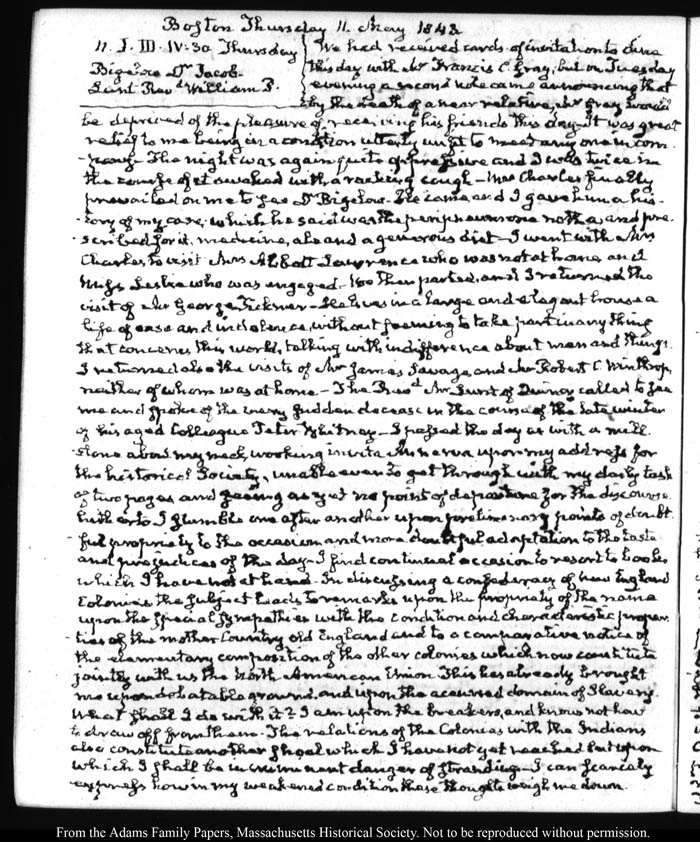 Boston Thursday 11. May 1843
11. I. III. IV:30 Thursday
Bigelow Dr Jacob
Lunt Revd William P.
We had received cards of invitation to dine
this day with Mr Francis C. Gray, but on Tuesday
evening a second note came announcing that
by the death of a near relative, Mr Gray would
be deprived of the pleasure of receiving his friends this day. It was great
relief to me being in a condition utterly unfit to meet any one in com-
pany. The night was again quite oppressive and I was twice in
the course of it awaked with a racking cough - Mrs Charles finally
prevailed on me to see Dr Bigelow. He came, and I gave him a his-
tory of my case, which he said was the peripneumonia notha, and pre-
scribed for it, medicine, ale and a generous diet - I went with Mrs
Charles, to visit Mrs Abbott Lawrence who was not at home, and
Miss Leslie who was engaged. We then parted, and I returned the
visit of Mr George Ticknor - He lives in a large and elegant house a
life of ease and indolence, without seeming to take part in any thing
that concerns this world, talking with indifference about men and things.
I returned also the visits of Mr James Savage and Mr Robert C. Winthrop
neither of whom was at home - The Revd Mr Lunt of Quincy called to see
me and spoke of the very sudden decease in the course of the late winter
of his aged Colleague Peter Whitney - I passed the day as with a mill
stone about my neck, working invita Minerva upon my address for
the historical Society, unable even to get through with my daily task
of two pages and seeing as yet no point of departure for the discourse.
hitherto I stumble one after another upon preliminary points of doubt-
ful propriety to the occasion and more doubtful adaptation to the taste
and prejudices of the day - I find continual occasion to resort to books
which I have not at hand. In discussing a confederacy of New England
Colonies the subject leads to remarks upon the propriety of the name
upon the special sympathies with the condition and characteristic proper-
ties of the mother Country old England and to a comparative notice of
the elementary composition of the other colonies which now constitute
jointly with us the North American Union. This has already brought
me upon debatable ground, and upon the accursed domain of Slavery.
What shall I do with it? I am upon the breakers, and know not how
to draw off from them. The relations of the Colonies with the Indians
also constitute another shoal which I have not yet reached but upon
which I shall be in imminent danger of stranding - I can scarcely
express how in my weakened condition these thoughts weigh me down.
From the Adams Family Papers, Massachusetts Historical Society. Not to be reproduced without permission.